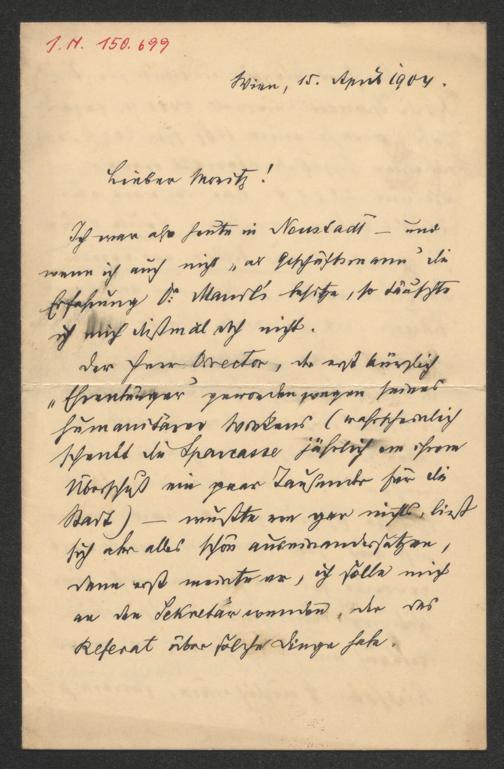 J.N. 150.699
Wien, 15. April 1904.
Lieber Moritz!
Ich war also heute in Neustadt – und
wenn ich auch nicht „als Geschäftsmann" die
Erfahrung Dr Mandl's besitze, so täuschte
ich mich diesmal doch nicht.
Der Herr Director, der erst kürzlich
„Ehrenbürger" geworden wegen seines
humanitären Wirkens (wahrscheinlich
schenkt die Sparcasse jährlich von ihrem
Überschuß ein paar Tausender für die
Stadt) – wußte von gar nichts, ließ
sich aber alles schön auseinandersetzen,
dann erst meinte er, ich solle mich
an den Sekretär wenden, der das
Referat über solche Dinge habe.